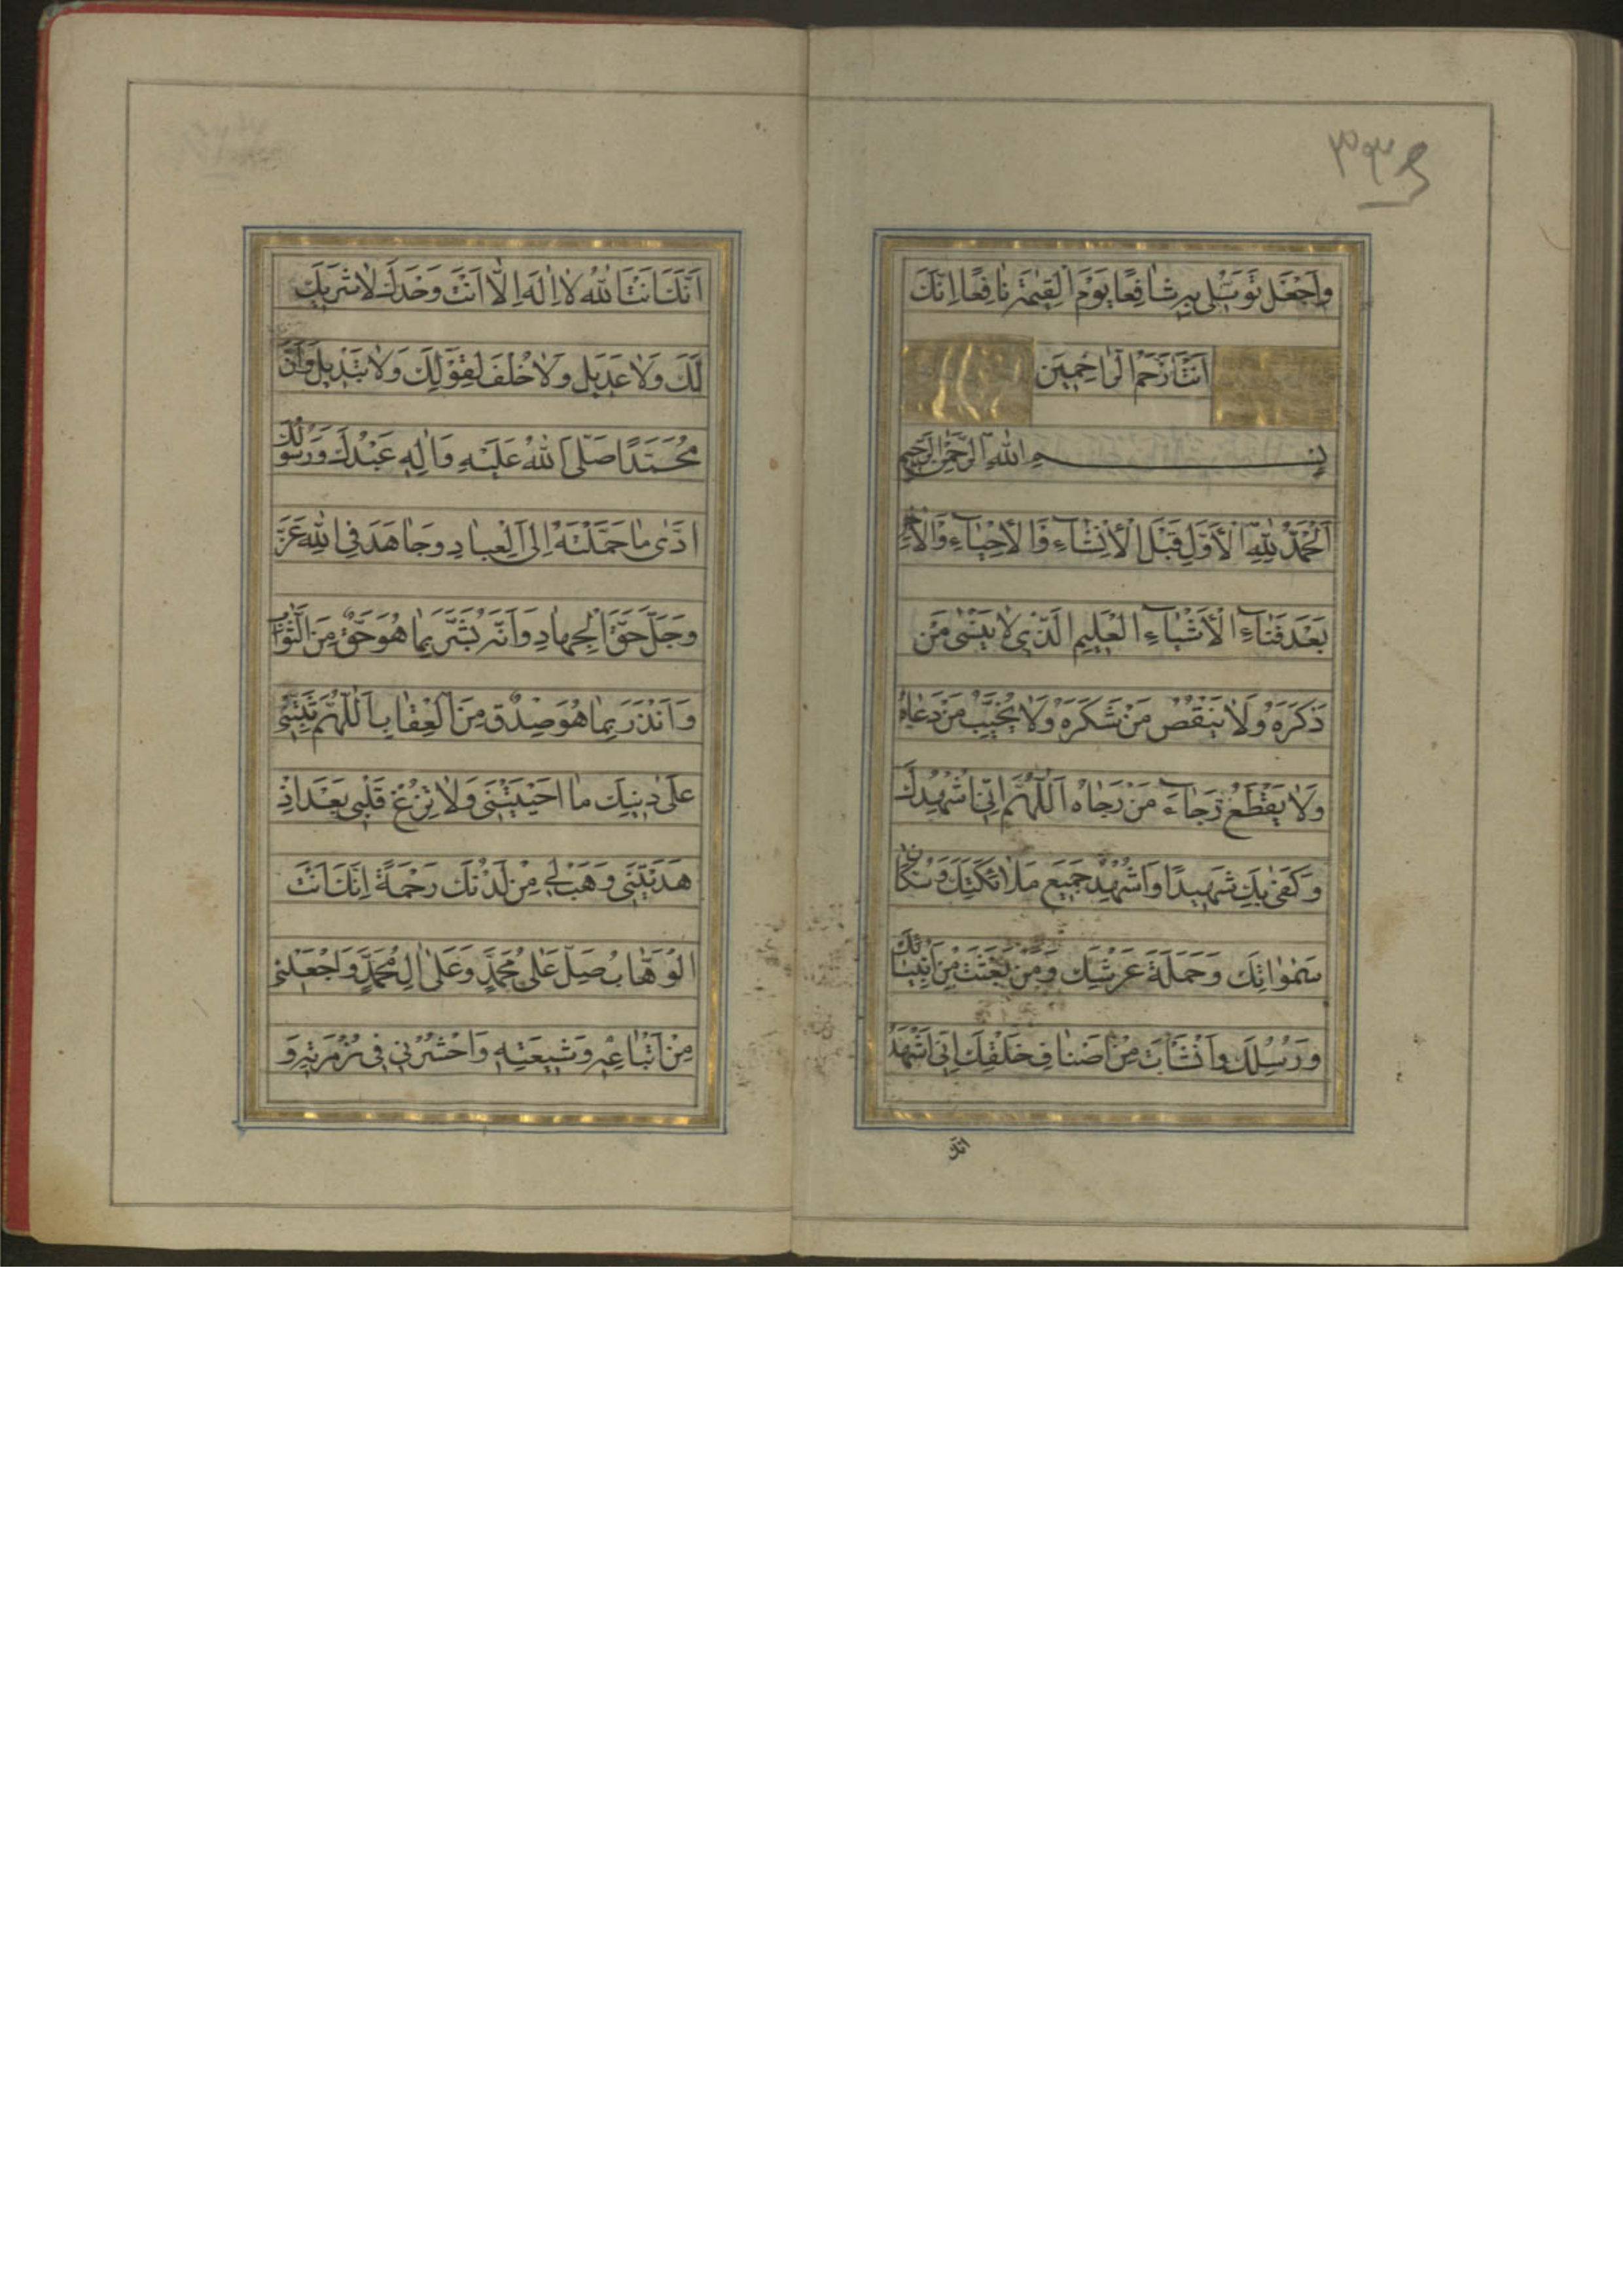 وَاجْعَلْ تَوَسُّلِي بِهِ شَافِعًا يَوْمَ الْقِيٰمَةِ نَافِعًا اِنَّكَ
اَنْتَ اَرْحَمُ الرَّاحِمِينَ
بِسْمِ اللّٰهِ الرَّحْمٰنِ الرَّحِيمِ
اَلْحَمْدُ لِلّٰهِ الْاَوَّلِ قَبْلَ الْاِنْشَاءِ وَالْاَحْيَاءِ وَالْاٰخِرِ
بَعْدَ فَنَاءِ الْاَشْيَاءِ الْعَلِيمِ الَّذِي لَا يَنْسٰى مَنْ
ذَكَرَهُ وَلَا يَنْقُصُ مَنْ شَكَرَهُ وَلَا يُخَيِّبُ مَنْ دَعَاهُ
وَلَا يَقْطَعُ رَجَاءَ مَنْ رَجَاهُ اَللّٰهُمَّ اِنِّي اُشْهِدُكَ
وَكَفٰى بِكَ شَهِيدًا وَاُشْهِدُ جَمِيعَ مَلَائِكَتِكَ وَسُكَّانَ
سَمٰوَاتِكَ وَحَمَلَةَ عَرْشِكَ وَمَنْ بَعَثْتَ مِنْ اَنْبِيَائِكَ
وَرُسُلِكَ وَاَنْشَأْتَ مِنْ اَصْنَافِ خَلْقِكَ اَنِّي اَشْهَدُ
انك
اَنَّكَ اَنْتَ اللّٰهُ لَا اِلٰهَ اِلَّا اَنْتَ وَحْدَكَ لَا شَرِيكَ
لَكَ وَلَا عَدِيلَ وَلَا خُلْفَ لِقَوْلِكَ وَلَا تَبْدِيلَ وَاَنَّ
مُحَمَّدًا صَلَّى اللّٰهُ عَلَيْهِ وَاٰلِهِ عَبْدُكَ وَرَسُولُكَ
اَدّٰى مَا حَمَّلْتَهُ اِلَى الْعِبَادِ وَجَاهَدَ فِي اللّٰهِ عَزَّ
وَجَلَّ حَقَّ الْجِهَادِ وَاَنَّهُ بَشَّرَ بِمَا هُوَ حَقٌّ مِنَ الثَّوَابِ
وَاَنْذَرَ بِمَا هُوَ صِدْقٌ مِنَ الْعِقَابِ اَللّٰهُمَّ ثَبِّتْنِي
عَلٰى دِينِكَ مَا اَحْيَيْتَنِي وَلَا تُزِغْ قَلْبِي بَعْدَ اِذْ
هَدَيْتَنِي وَهَبْ لِي مِنْ لَدُنْكَ رَحْمَةً اِنَّكَ اَنْتَ
الْوَهَّابُ صَلِّ عَلٰى مُحَمَّدٍ وَعَلٰى اٰلِ مُحَمَّدٍ وَاجْعَلْنِي
مِنْ اَتْبَاعِهِ وَشِيعَتِهِ وَاحْشُرْنِي فِي زُمْرَتِهِ وَ